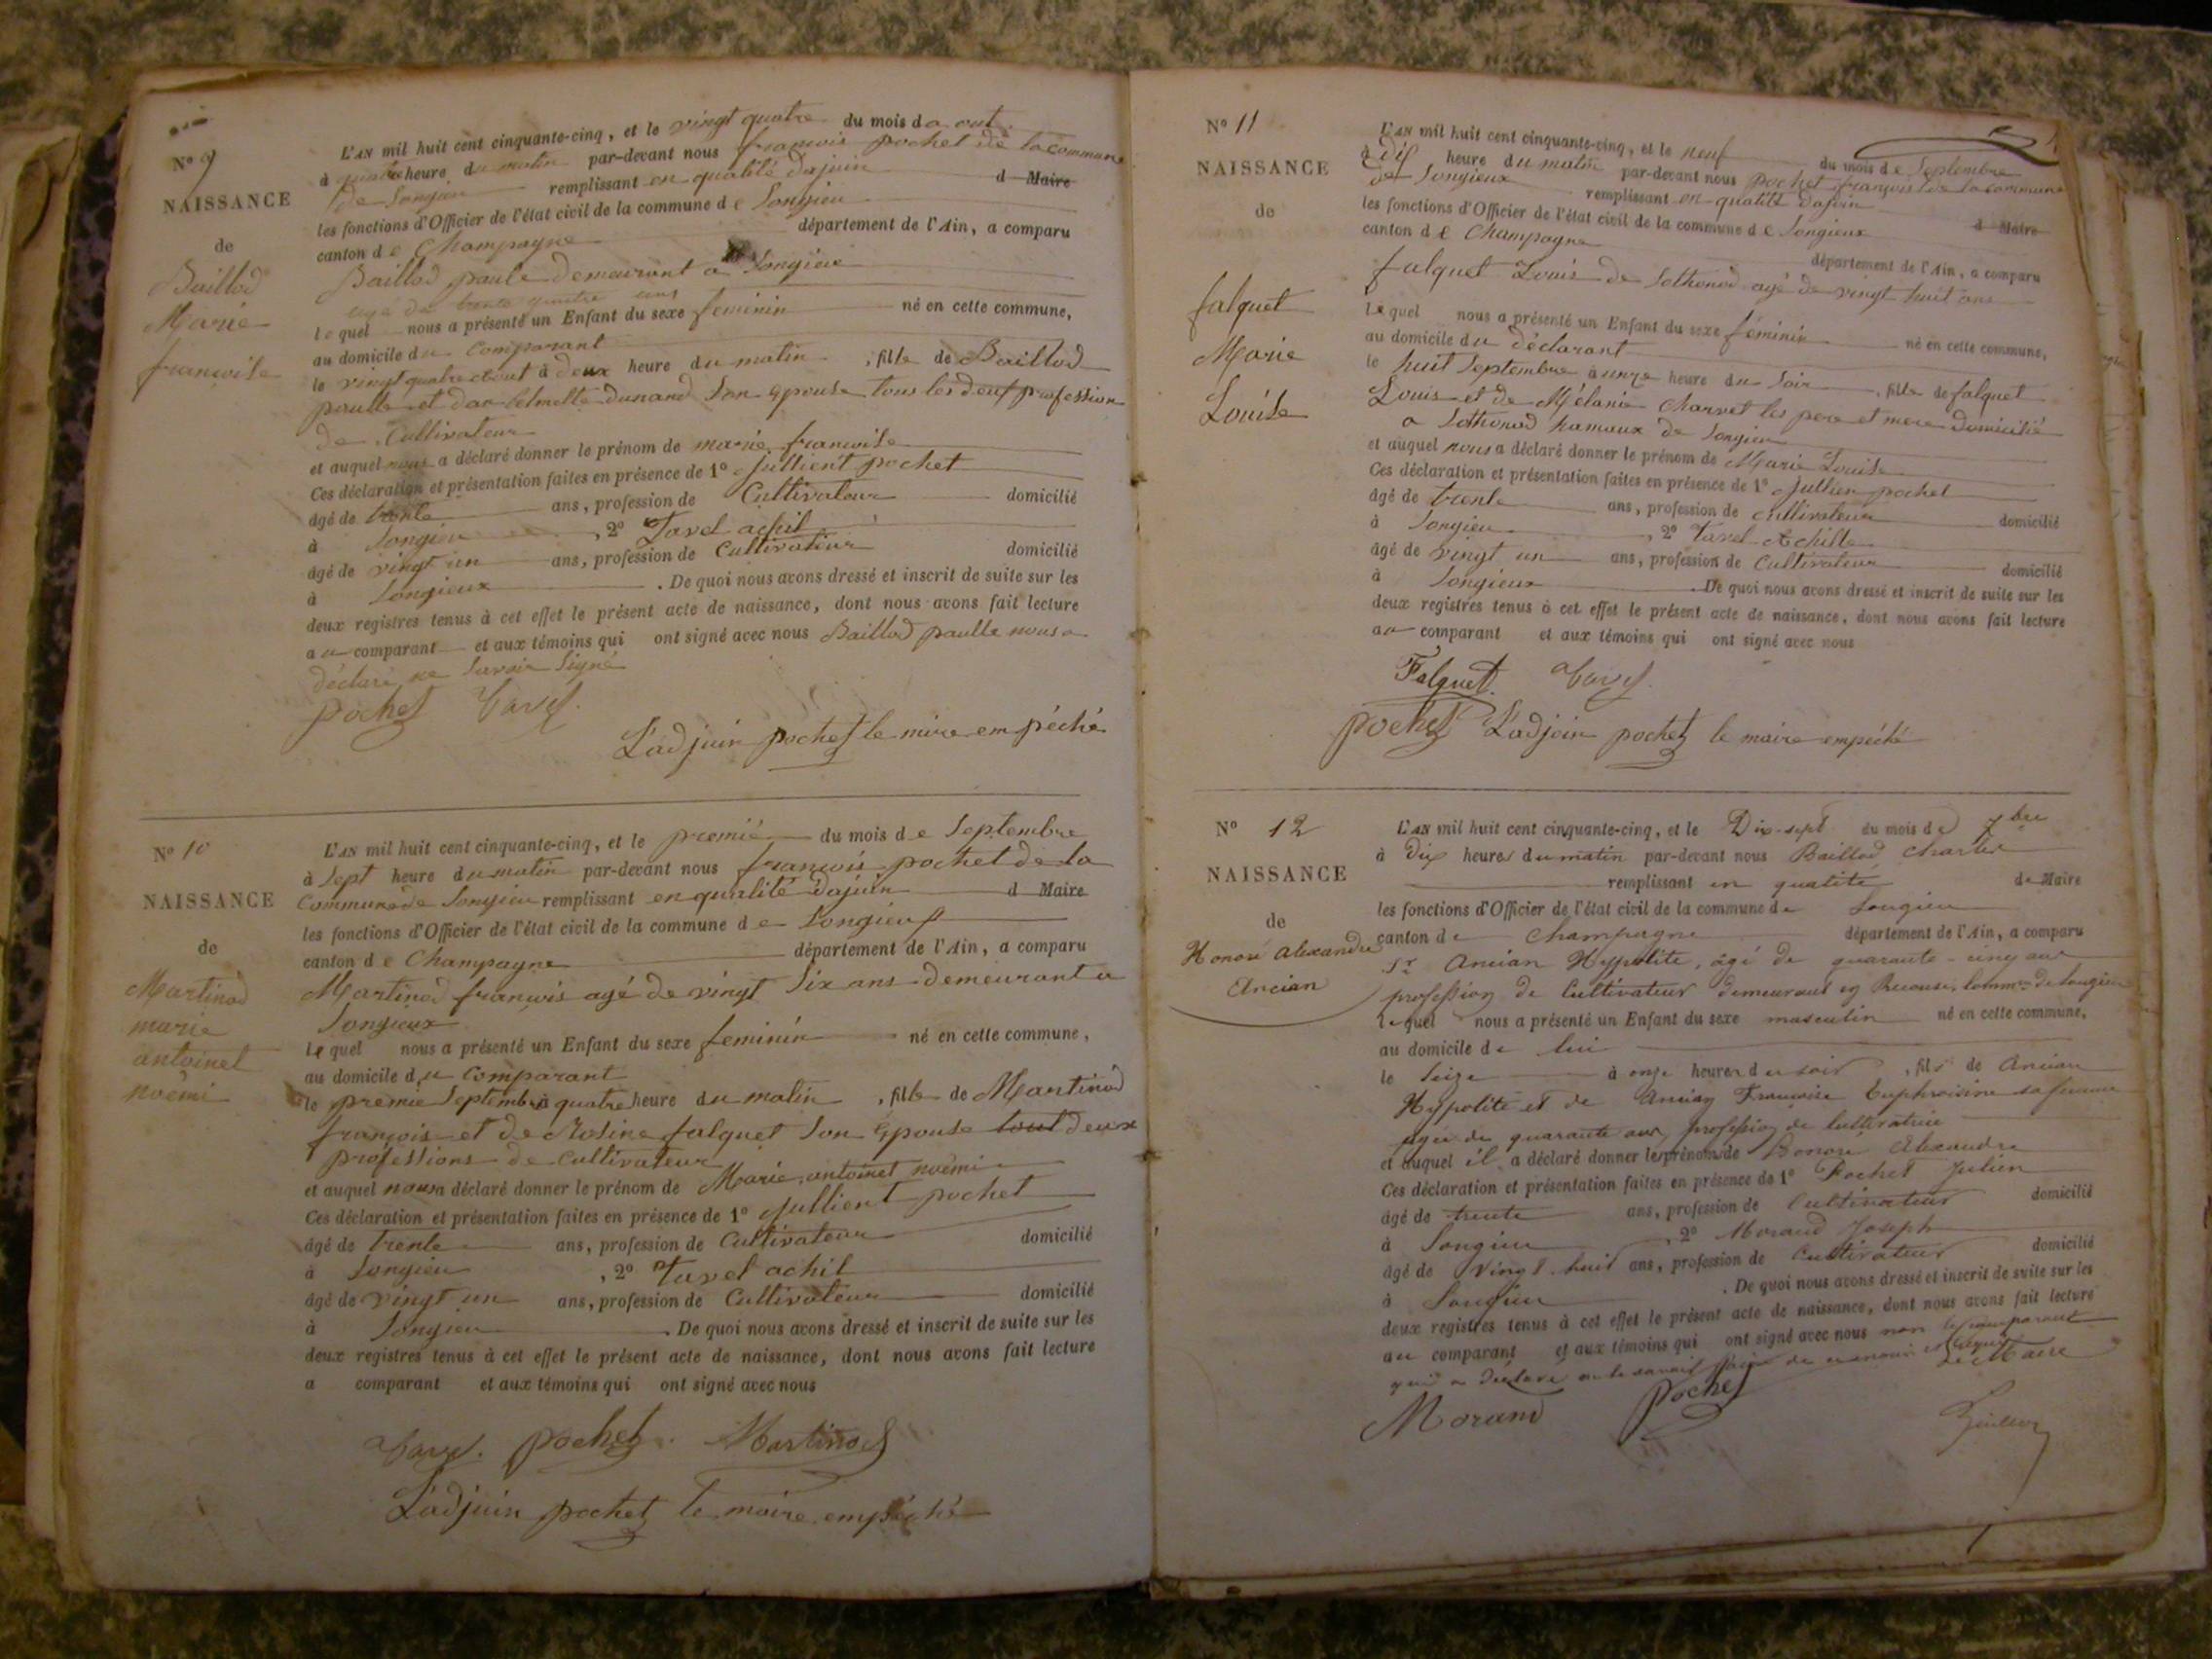 N° 9
NAISSANCE
de
Baillod
Marie
francoise
L'AN mil huit cent cinquante-cinq, et le vingt quatre du mois d a out
à quatre heure du matin par-devant nous francois pochet de la commune
de Songieu remplissant en qualité dajuin d Maire
les fonctions d'Officier de l'état civil de la commune de Songieu
canton de Champagne département de l'Ain, a comparu
Baillod paule demeurant a Songieu
agé de trente quatre ans
lequel nous a présenté un Enfant du sexe feminin né en cette commune,
au domicile du Comparant
le vingt quatre aout à deux heure du matin, fille de Baillod
paulle et dan son epouse tous les deux profession
de Cultivateur
et auquel nous a déclaré donner le prénom de marie francoise
Ces déclaration et présentation faites en présence de 1° Jullient pochet
âgé de trente ans, profession de Cultivateur domicilié
à Songieu, 2° Tavel achil
âgé de vingt un ans, profession de Cultivateur domicilié
à Songieux. De quoi nous avons dressé et inscrit de suite sur les
deux registres tenus à cet effet le présent acte de naissance, dont nous avons fait lecture
au comparant et aux témoins qui ont signé avec nous Baillod paulle nous a
déclaré ne savoir signé
pochet Tavel
L'adjuin pochet le maire empéché
N° 10
NAISSANCE
de
Martinod
marie
antoinet
noémi
L'AN mil huit cent cinquante-cinq, et le premié du mois de Septembre
à Sept heure du matin par-devant nous francois pochet de la
Commune de Songieu remplissant en qualité dajuin d Maire
les fonctions d'Officier de l'état civil de la commune de Songieux
canton de Champagne département de l'Ain, a comparu
Martinod francois agé de vingt Six ans demeurant a
Songieux
lequel nous a présenté un Enfant du sexe feminin né en cette commune,
au domicile du Comparant
le premie Septembre à quatre heure du matin, fille de Martinod
francois et de Rosine falquet Son Epouse tout deux
professions de Cultivateur
et auquel nous a déclaré donner le prénom de Marie antoinet noémi
Ces déclaration et présentation faites en présence de 1° Jullient pochet
âgé de trente ans, profession de Cultivateur domicilié
à Songieu, 2° Tavel achil
âgé de vingt un ans, profession de Cultivateur domicilié
à Songieu. De quoi nous avons dressé et inscrit de suite sur les
deux registres tenus à cet effet le présent acte de naissance, dont nous avons fait lecture
a comparant et aux témoins qui ont signé avec nous
Tavel. pochet. Martinod
L'adjuin pochet le maire empéché
N° 11
NAISSANCE
de
falquet
Marie
Louise
L'AN mil huit cent cinquante-cinq, et le neuf du mois de Septembre
à dix heure du matin par-devant nous pochet françois de la commune
de Songieux remplissant en qualité dajoin d Maire
les fonctions d'Officier de l'état civil de la commune de Songieux
canton de Champagne département de l'Ain, a comparu
falquet Louis de Sothonod agé de vingt huit ans
lequel nous a présenté un Enfant du sexe féminin né en cette commune,
au domicile du déclarant
le huit Septembre à onze heure du Soir, fille de falquet
Louis et de Mélanie Charvet les pere et mere domicilié
a Sothonod hamaux de Songieu
et auquel nous a déclaré donner le prénom de Marie Louise
Ces déclaration et présentation faites en présence de 1° Jullien pochet
âgé de trente ans, profession de cultivateur domicilié
à Songieu, 2° Tavel Achille
âgé de vingt un ans, profession de Cultivateur domicilié
à Songieux. De quoi nous avons dressé et inscrit de suite sur les
deux registres tenus à cet effet le présent acte de naissance, dont nous avons fait lecture
au comparant et aux témoins qui ont signé avec nous
Falquet. Tavel.
pochet L'adjoin pochet le maire empéché
N° 12
NAISSANCE
de
Honoré Alexandre
Ancian
L'AN mil huit cent cinquante-cinq, et le Dix-sept du mois de 7bre
à dix heures du matin par-devant nous Baillod Charles
remplissant en qualité de Maire
les fonctions d'Officier de l'état civil de la commune de Songieu
canton de Champagne département de l'Ain, a comparu
Sr Ancian Hyppolite, âgé de quarante-cinq ans
profession de Cultivateur demeurant en Comne de Songieu
lequel nous a présenté un Enfant du sexe masculin né en cette commune,
au domicile de lui
le Seize à onze heures du soir, fils de Ancian
Hypolite et de Ancian Francoise Euphroisine sa femme
agée de quarante ans, profession de Cultivatrice
et auquel il a déclaré donner les prénoms de Honoré Alexandre
Ces déclaration et présentation faites en présence de 1° Pochet Julien
âgé de trente ans, profession de Cultivateur domicilié
à Songieu, 2° Morand Joseph
âgé de Vingt-huit ans, profession de Cultivateur domicilié
à Songieu. De quoi nous avons dressé et inscrit de suite sur les
deux registres tenus à cet effet le présent acte de naissance, dont nous avons fait lecture
au comparant et aux témoins qui ont signé avec nous non le comparant
qui a déclaré ne le savoir faire de ce enquis et requis
Le Maire
Morand Pochet